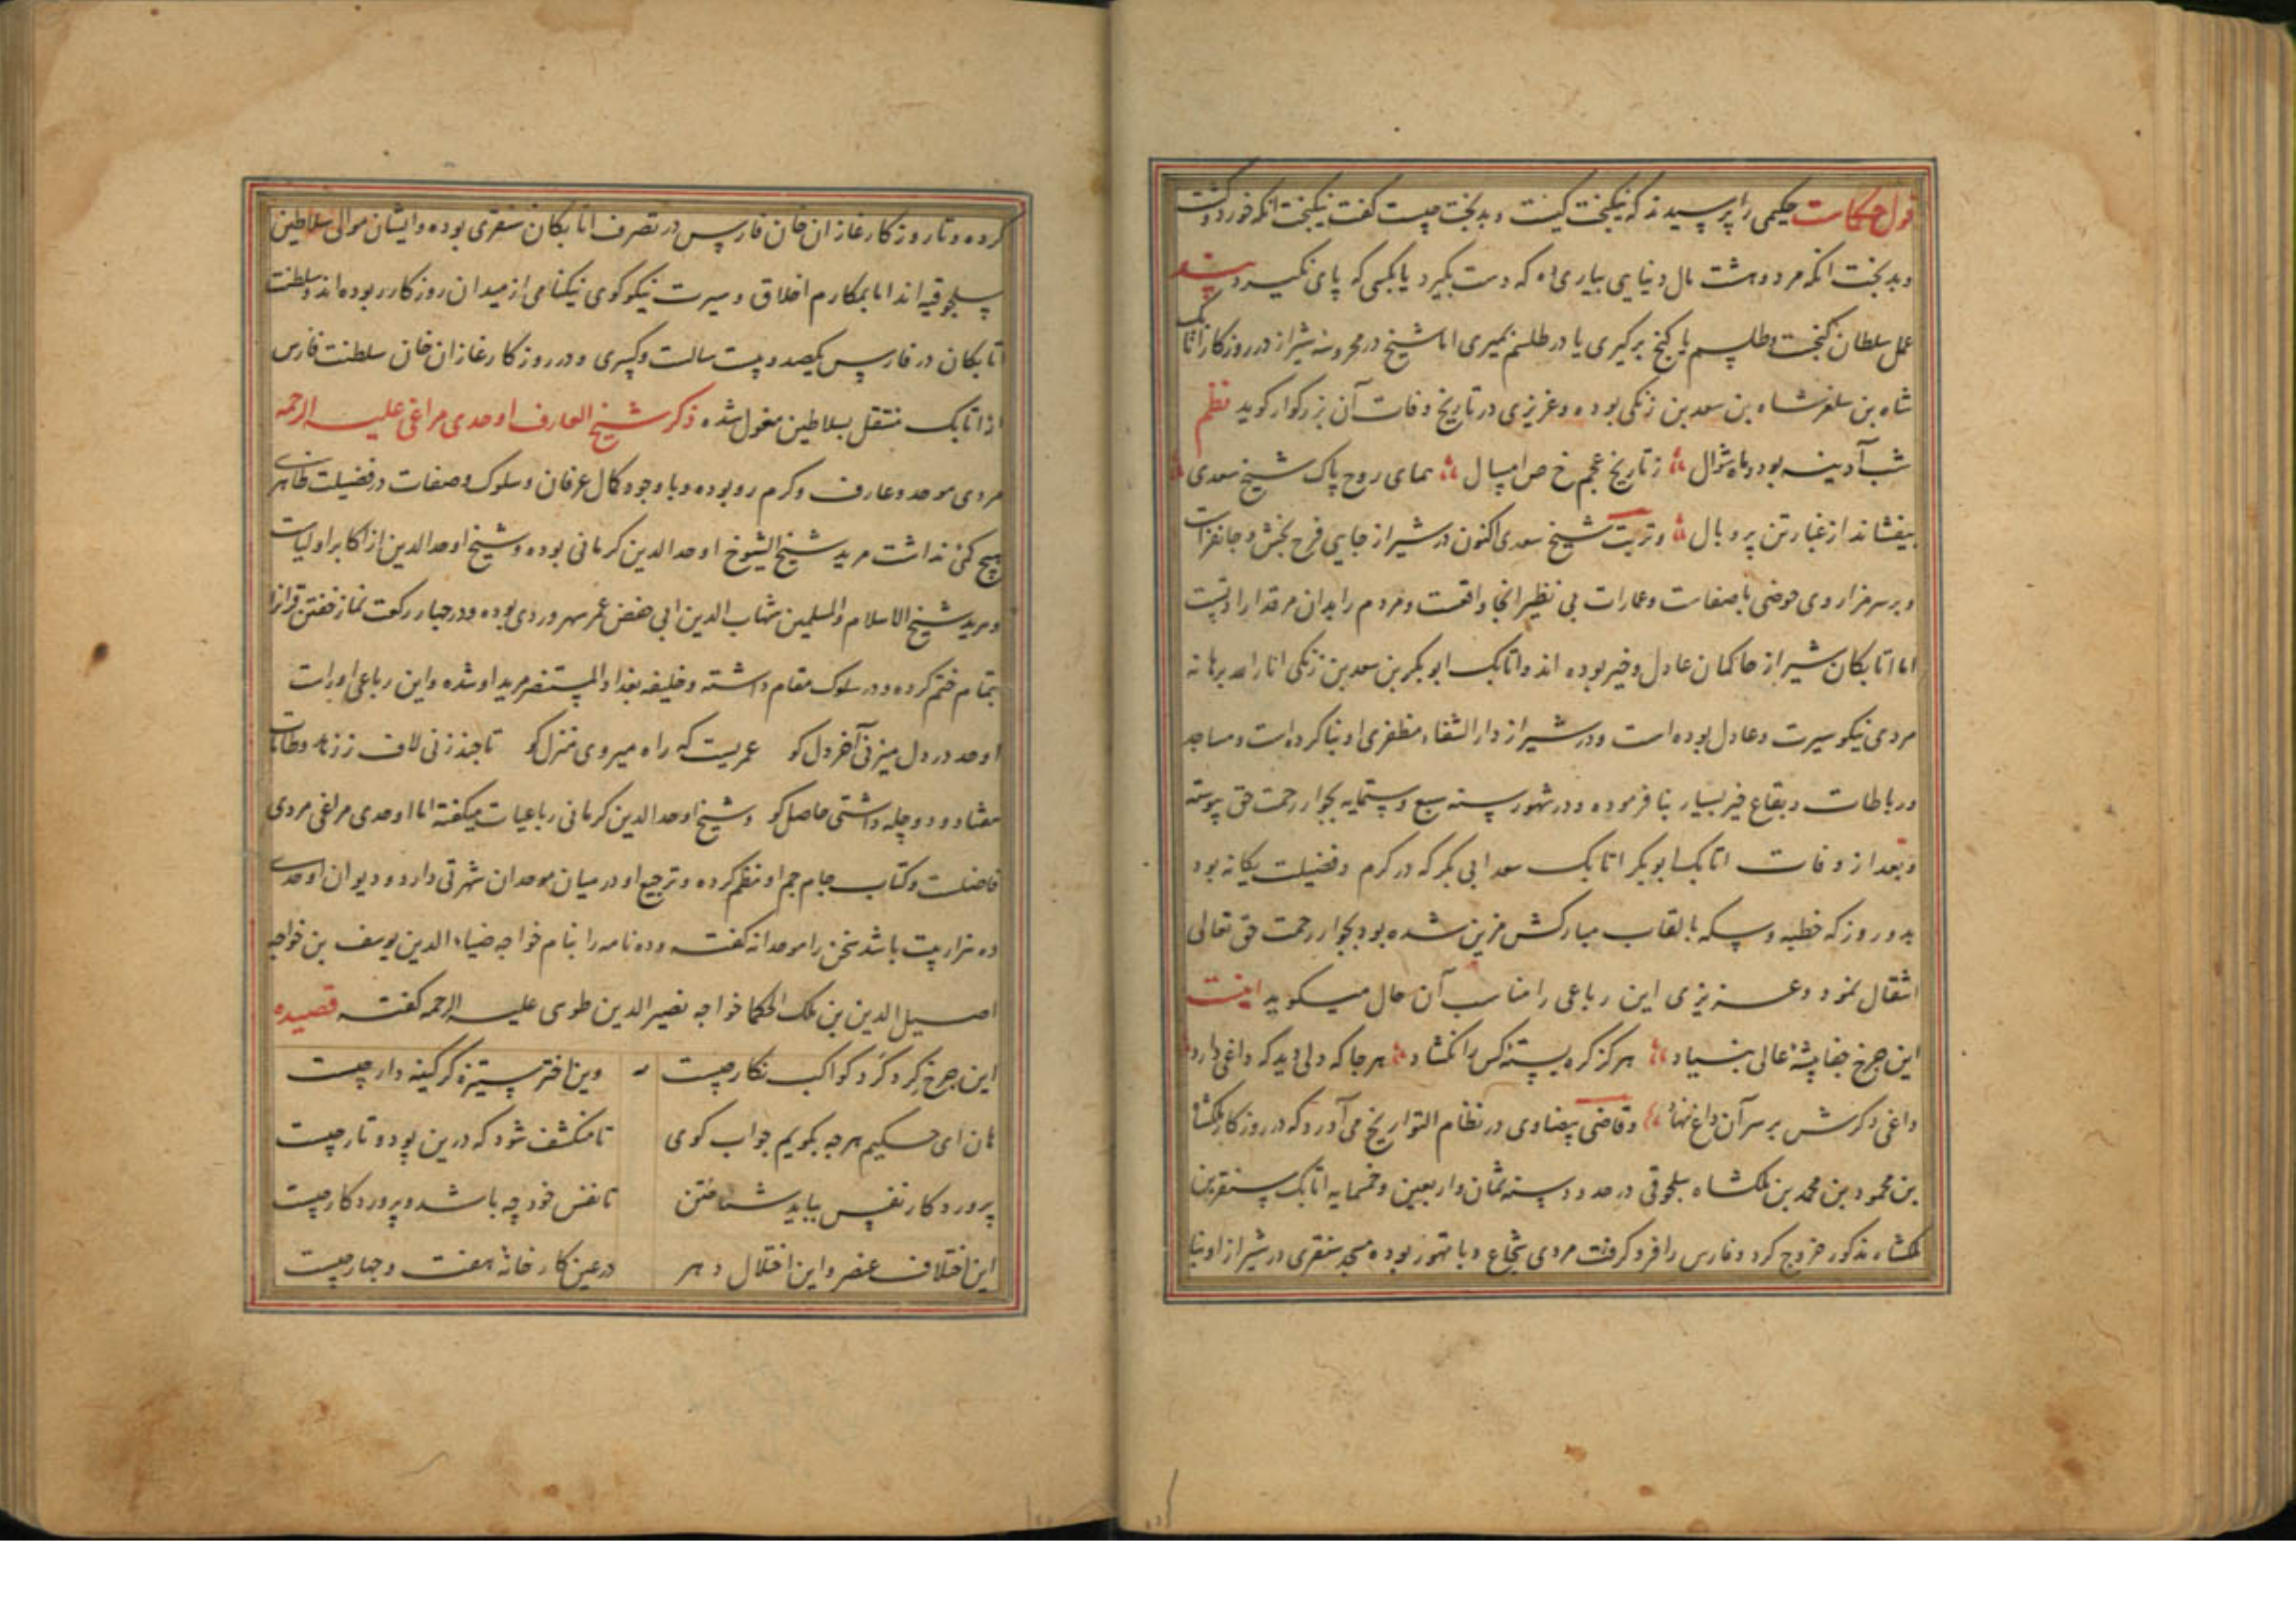 قول حکمات حکیمی را پرسیدند که نیکبخت کیست و بدبخت چیست کفت نیکبخت انکه خورد و کشت
و بدبخت انکه مرد و هشت مال دنیایی بیاری که دست بگیرد یا بکسی که پای نکیرد پند
عمل سلطان کنجست و طلسم یا کنج برگیری یا در طلسم بمیری اما شیخ در محروسه شیراز در روزکار اتابک
شاه بن سلغرشاه بن سعد بن زنکی بوده و عزیزی در تاریخ وفات آن بزرکوار کوید نظم
شب آدینه بود و ماه شوال ز تاریخ عجم خ ص ا سال همای روح پاک شیخ سعدی
بیفشاند از غبار تن پر و بال و تربت شیخ سعدی اکنون در شیراز جایی فرح بخش و جانفزاست
و بر سر مزار وی حوضی با صفاست و عمارات بی نظیر انجا واقعست و مردم را بدان مرقد ارادتیست
اما اتابکان شیراز حاکمان عادل و خیر بوده اند و اتابک ابوبکر بن سعد بن زنکی انار الله برهانه
مردی نیکو سیرت و عادل بوده است و در شیراز دار الشفاء مظفری او بنا کرده است و مساجد
و رباطات و بقاع خیر بسیار بنا فرموده و در شهور سنه سبع و ستمایه بجوار رحمت حق پیوسته
و بعد از وفات اتابک ابوبکر اتابک سعد ابی بکر که در کرم و فضیلت یکانه بود
بدو روز که خطبه و سکه بالقاب مبارکش مزین شده بود بجوار رحمت حق تعالی
انتقال نمود و عزیزی این رباعی را مناسب آن حال میکوید اینست
این جرخ جفا پیشه عالی بنیاد هرکز کره بسته کس را نکشاد هر جا که دلی دید که داغی دارد
داغی دکرش بر سر آن داغ نهاد و قاضی بیضاوی در نظام التواریخ می آورد که در روزکار ملکشاه
بن محمود بن محمد بن ملکشاه سلجوقی در حدود سنه ثمان و اربعین و خمسمایه اتابک سنقر بن
ملکشاه مذکور خروج کرد و فارس را فرو کرفت مردی شجاع و با تهور بوده مسجد سنقری در شیراز او بنا
کرده و تا روزکار غازان خان فارس در تصرف اتابکان سنقری بوده و ایشان موالی سلاطین
سلجوقیه اند اما بمکارم اخلاق و سیرت نیکو کوی نیکنامی از میدان روزکار ربوده اند و سلطنت
اتابکان در فارس یکصد و بیست سالست و کسری و در روزکار غازان خان سلطنت فارس
از اتابک منتقل بسلاطین مغول شده ذکر شیخ العارف اوحدی مراغی علیه الرحمه
مردی موحد و عارف و کرم رو بوده و با وجود کمال عرفان و سلوک و صفات در فضیلت ظاهری
هیچ کمی نداشت مرید شیخ الشیوخ اوحد الدین کرمانی بوده و شیخ اوحد الدین از اکابر اولیاست
و مرید شیخ الاسلام و المسلمین شهاب الدین ابی حفص عمر سهروردی بوده و در جهار رکعت نماز خفتن قرانرا
بتمام ختم کرده و در سلوک مقام داشته و خلیفه بغداد المستنصر مرید او شده و این رباعی اوراست
اوحد در دل میزنی آخر دل کو عمریست که راه میروی منزل کو تا جند زنی لاف ز زهد و طامات
هفتاد و دو چله داشتی حاصل کو و شیخ اوحد الدین کرمانی رباعیات میکفته اما اوحدی مراغی مردی
فاضلست و کتاب جام جم او نظم کرده و ترجیع او در میان موحدان شهرتی دارد و دیوان اوحدی
ده هزار بیت باشد سخن را موحدانه کفته و ده نامه را بنام خواجه ضیاء الدین یوسف بن خواجه
اصیل الدین بن ملک الحکما خواجه نصیر الدین طوسی علیه الرحمه کفته قصیده
این جرخ کرد کرد کواکب نکار چیست وین اختر ستیزه کر کینه دار چیست
هان ای حکیم هر چه بکویم جواب کوی تا منکشف شود که درین پود و تار چیست
پروردکار نفس بباید شناختن تا نفس خود چه باشد و پروردکار چیست
این اختلاف عنصر و این اختلال دهر در عین کارخانه هفت و جهار چیست